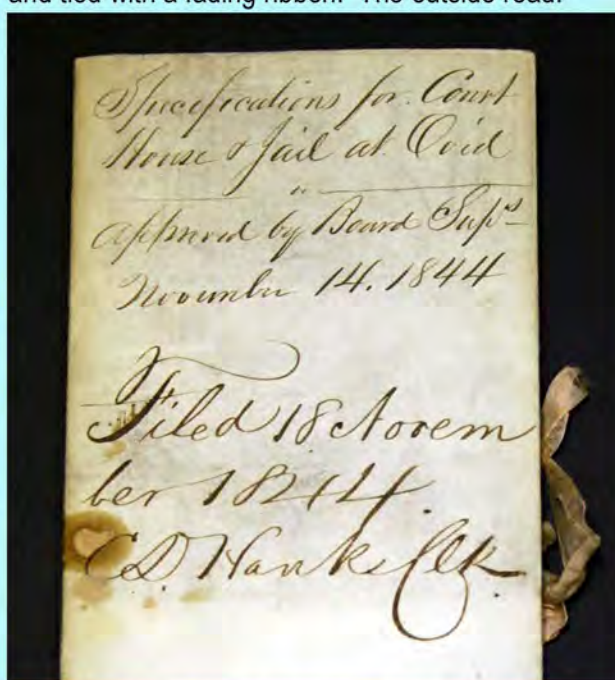 and tied with a fading ribbon. The outside read:
Specifications for Court
House & Jail at Ovid
approved by Board Sups
November 14. 1844
Filed 18 Novem
ber 1844.
CD Hanks Clk